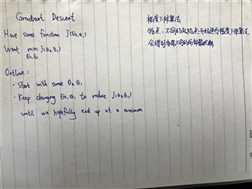 Gradient Descent
Have some function J(θ₀,θ₁)
Want min J(θ₀,θ₁)
θ₀,θ₁
Outline:
· Start with some θ₀,θ₁
· Keep changing θ₀,θ₁ to reduce J(θ₀,θ₁)
until we hopefully end up at a minimum
梯度下降算法
特点:不同的起始点